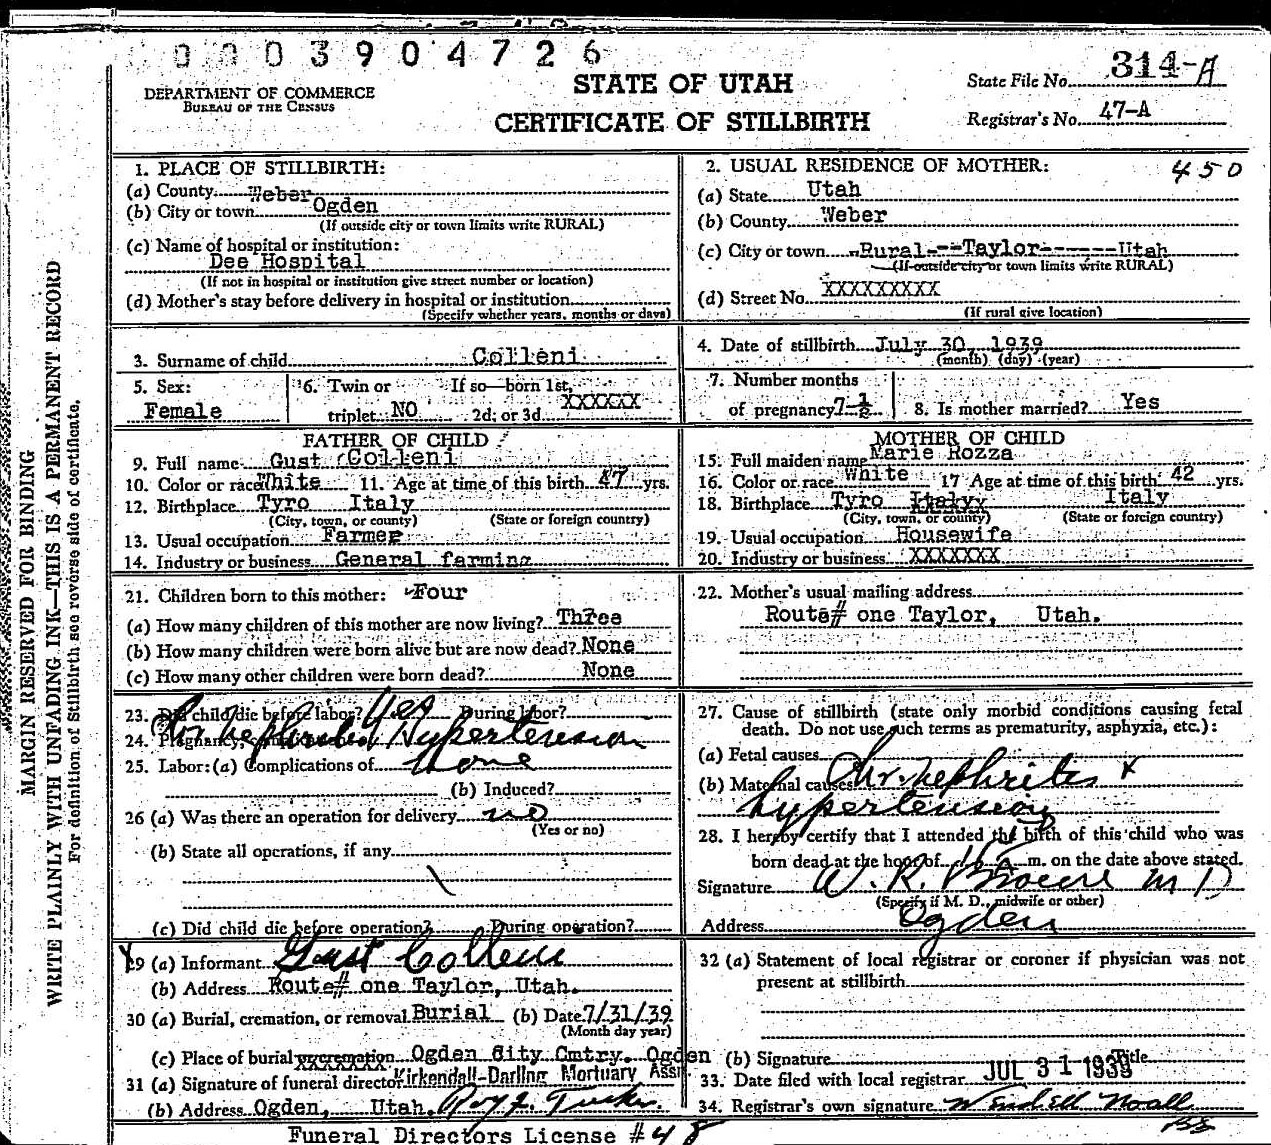 0003904726
DEPARTMENT OF COMMERCE
BUREAU OF THE CENSUS
STATE OF UTAH
CERTIFICATE OF STILLBIRTH
State File No. 314-A
Registrar's No. 47-A
MARGIN RESERVED FOR BINDING
WRITE PLAINLY WITH UNFADING INK—THIS IS A PERMANENT RECORD
For definition of Stillbirth see reverse side of certificate.
1. PLACE OF STILLBIRTH:
(a) County Weber
(b) City or town Ogden
(If outside city or town limits write RURAL)
(c) Name of hospital or institution:
Dee Hospital
(If not in hospital or institution give street number or location)
(d) Mother's stay before delivery in hospital or institution
(Specify whether years, months or days)
2. USUAL RESIDENCE OF MOTHER: 450
(a) State Utah
(b) County Weber
(c) City or town Rural--Taylor------Utah
(If outside city or town limits write RURAL)
(d) Street No. XXXXXXXXX
(If rural give location)
3. Surname of child Colleni
4. Date of stillbirth July 30, 1939
(month) (day) (year)
5. Sex:
Female
6. Twin or triplet NO If so—born 1st, 2d, or 3d XXXXXX
7. Number months of pregnancy 7-½
8. Is mother married? Yes
FATHER OF CHILD
9. Full name Gust Colleni
10. Color or race White 11. Age at time of this birth 47 yrs.
12. Birthplace Tyro Italy
(City, town, or county) (State or foreign country)
13. Usual occupation Farmer
14. Industry or business General farming
MOTHER OF CHILD
15. Full maiden name Marie Rozza
16. Color or race White 17 Age at time of this birth 42 yrs.
18. Birthplace Tyro Italyy Italy
(City, town, or county) (State or foreign country)
19. Usual occupation Housewife
20. Industry or business XXXXXXX
21. Children born to this mother: Four
(a) How many children of this mother are now living? Three
(b) How many children were born alive but are now dead? None
(c) How many other children were born dead? None
22. Mother's usual mailing address
Route# one Taylor, Utah.
23. Did child die before labor? Yes During labor?
24. Pregnancy, Hypertension
25. Labor: (a) Complications of none
(b) Induced?
26 (a) Was there an operation for delivery no
(Yes or no)
(b) State all operations, if any
(c) Did child die before operation? During operation?
27. Cause of stillbirth (state only morbid conditions causing fetal
death. Do not use such terms as prematurity, asphyxia, etc.):
(a) Fetal causes
(b) Maternal causes Chr. nephritis +
hypertension
28. I hereby certify that I attended the birth of this child who was
born dead at the hour of m. on the date above stated.
Signature W. R. M D
(Specify if M. D., midwife or other)
Address Ogden
29 (a) Informant Gust Colleni
(b) Address Route# one Taylor, Utah.
30 (a) Burial, cremation, or removal Burial (b) Date 7/31/39
(Month day year)
(c) Place of burial or cremation Ogden City Cmtry. Ogden
31 (a) Signature of funeral director Kirkendall-Darling Mortuary Assn
(b) Address Ogden, Utah. Roy F. Tucker
Funeral Directors License #48
32 (a) Statement of local registrar or coroner if physician was not
present at stillbirth
(b) Signature Title
33. Date filed with local registrar JUL 31 1939
34. Registrar's own signature Wendell Noall